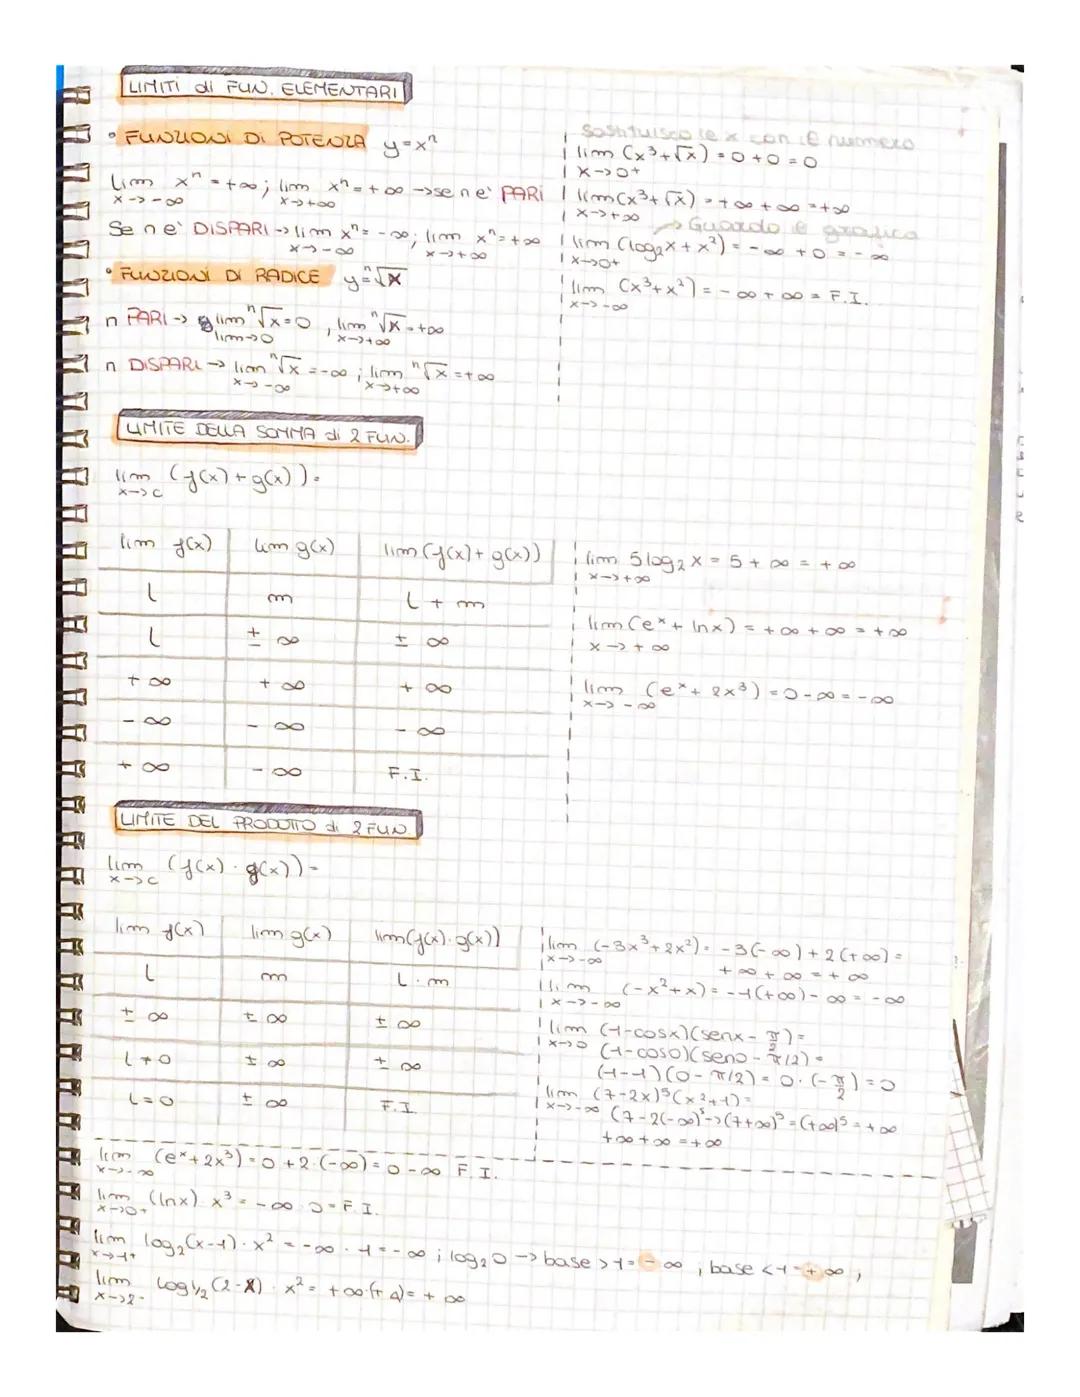 LIMITI di FUN. ELEMENTARI
• FUNZIONI DI POTENZA y=xⁿ
lim x→-∞ xⁿ = +∞; lim x→+∞ xⁿ = +∞ → se n e' PARI
Se n e' DISPARI → lim x→-∞ xⁿ = -∞; lim x→+∞ xⁿ = +∞
• FUNZIONI DI RADICE y=ⁿ√x
n PARI → lim lim→0 ⁿ√x = 0, lim x→+∞ ⁿ√x = +∞
n DISPARI → lim x→-∞ ⁿ√x = -∞; lim x→+∞ ⁿ√x = +∞
Sostituisco le x con il numero
lim x→0+ (x³+√x) = 0+0 = 0
lim x→+∞ (x³+√x) = +∞+∞ = +∞
→ Guardo il grafico
lim x→0+ (log₂x + x²) = -∞ + 0 = -∞
lim x→-∞ (x³+x²) = -∞+∞ = F.I.
LIMITE DELLA SOMMA di 2 FUN.
lim x→c (f(x)+g(x)) =
lim f(x) lim g(x) lim (f(x)+g(x))
l m l + m
l ±∞ ±∞
+∞ +∞ +∞
-∞ -∞ -∞
+∞ -∞ F.I.
lim x→+∞ 5log₂x = 5+∞ = +∞
lim x→+∞ (eˣ + lnx) = +∞+∞ = +∞
lim x→-∞ (eˣ + 2x³) = 0-∞ = -∞
LIMITE DEL PRODOTTO di 2 FUN.
lim x→c (f(x) · g(x)) =
lim f(x) lim g(x) lim (f(x)·g(x))
l m l · m
±∞ ±∞ ±∞
l≠0 ±∞ ±∞
l=0 ±∞ F.I.
lim x→-∞ (-3x³+2x²) = -3(-∞)+2(+∞) =
+∞+∞ = +∞
lim x→-∞ (-x²+x) = -1(+∞)-∞ = -∞
lim x→0 (1-cosx)(senx-π/2) =
(1-cos0)(sen0-π/2) =
(1-1)(0-π/2) = 0·(-π/2) = 0
lim x→-∞ (7-2x)⁵(x²+1) =
(7-2(-∞)⁵ → (7+∞)⁵ = (+∞)⁵ = +∞
+∞+∞ = +∞
lim x→-∞ (eˣ+2x³) = 0+2·(-∞) = 0-∞ F.I.
lim x→0+ (lnx)·x³ = -∞·0 = F.I.
lim x→1+ log₂(x-1)·x² = -∞·1 = -∞; log₂0 → base>1 = -∞, base<1 = +∞,
lim x→2- log½(2-x)·x² = +∞·(+4) = +∞